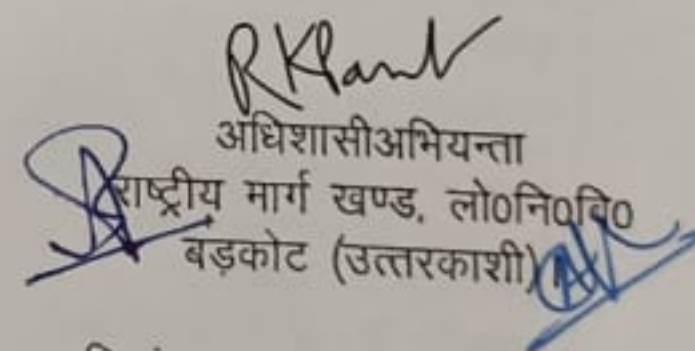 अधिशासीअभियन्ता
राष्ट्रीय मार्ग खण्ड, लो०नि०वि०
बड़कोट (उत्तरकाशी)